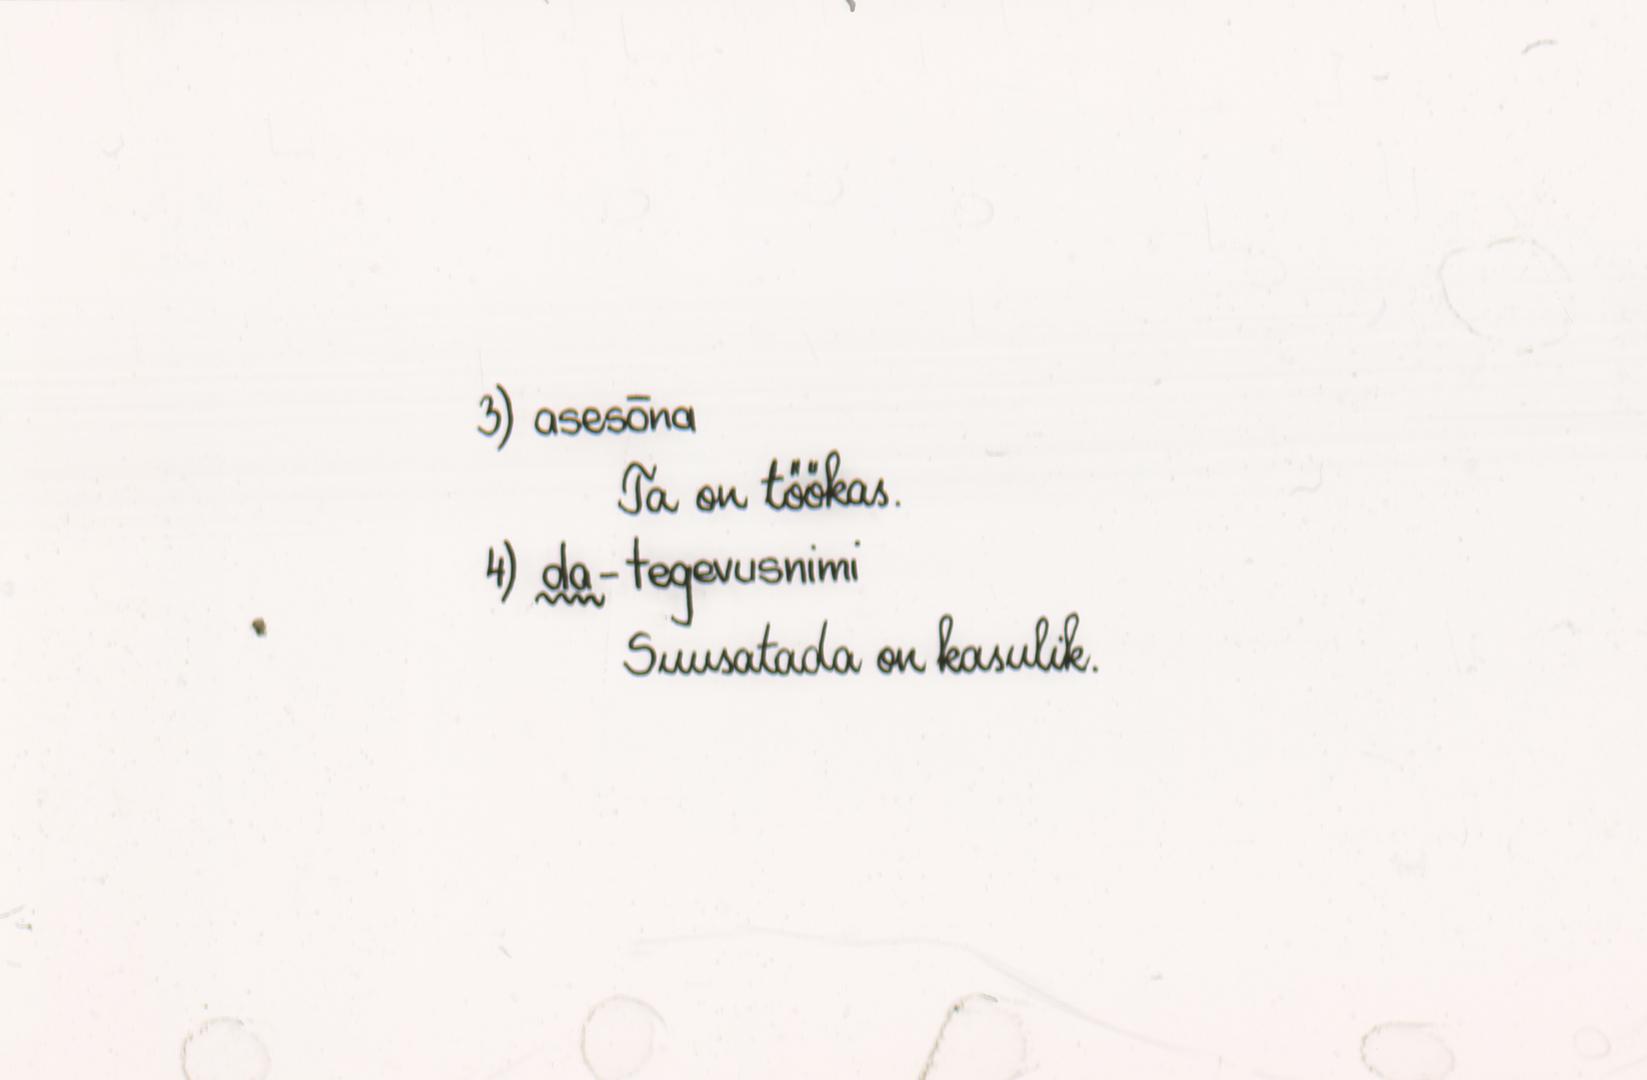 3) asesõna
Ta on töökas.
4) da-tegevusnimi
Suusatada on kasulik.